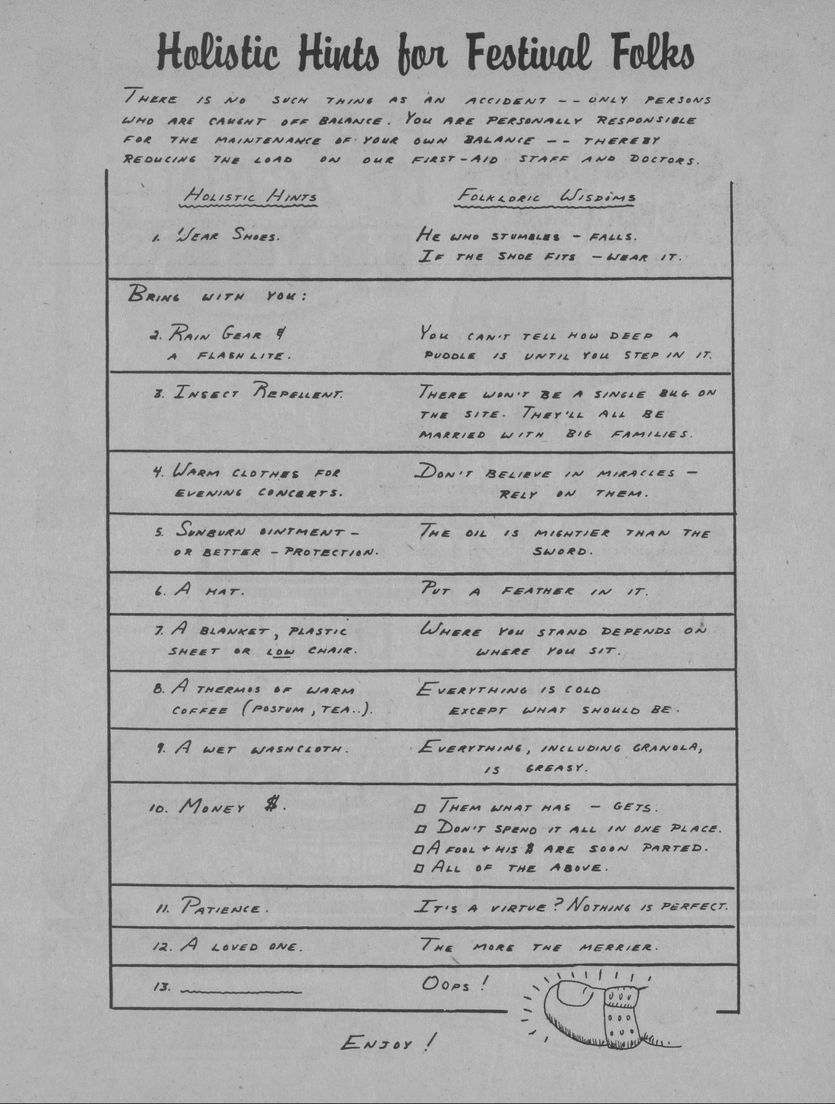 Holistic Hints for Festival Folks
THERE IS NO SUCH THING AS AN ACCIDENT -- ONLY PERSONS
WHO ARE CAUGHT OFF BALANCE. YOU ARE PERSONALLY RESPONSIBLE
FOR THE MAINTENANCE OF YOUR OWN BALANCE -- THEREBY
REDUCING THE LOAD ON OUR FIRST-AID STAFF AND DOCTORS.
HOLISTIC HINTS FOLKLORIC WISDOMS
1. WEAR SHOES. HE WHO STUMBLES - FALLS.
IF THE SHOE FITS - WEAR IT.
BRING WITH YOU:
2. RAIN GEAR & YOU CAN'T TELL HOW DEEP A
A FLASHLITE. PUDDLE IS UNTIL YOU STEP IN IT.
3. INSECT REPELLENT. THERE WON'T BE A SINGLE BUG ON
THE SITE. THEY'LL ALL BE
MARRIED WITH BIG FAMILIES.
4. WARM CLOTHES FOR DON'T BELIEVE IN MIRACLES -
EVENING CONCERTS. RELY ON THEM.
5. SUNBURN OINTMENT - THE OIL IS MIGHTIER THAN THE
OR BETTER - PROTECTION. SWORD.
6. A HAT. PUT A FEATHER IN IT.
7. A BLANKET, PLASTIC WHERE YOU STAND DEPENDS ON
SHEET OR LOW CHAIR. WHERE YOU SIT.
8. A THERMOS OF WARM EVERYTHING IS COLD
COFFEE (POSTUM, TEA..). EXCEPT WHAT SHOULD BE.
9. A WET WASHCLOTH. EVERYTHING, INCLUDING GRANOLA,
IS GREASY.
10. MONEY $. □ THEM WHAT HAS - GETS.
□ DON'T SPEND IT ALL IN ONE PLACE.
□ A FOOL + HIS $ ARE SOON PARTED.
□ ALL OF THE ABOVE.
11. PATIENCE. IT'S A VIRTUE? NOTHING IS PERFECT.
12. A LOVED ONE. THE MORE THE MERRIER.
13. OOPS!
ENJOY!